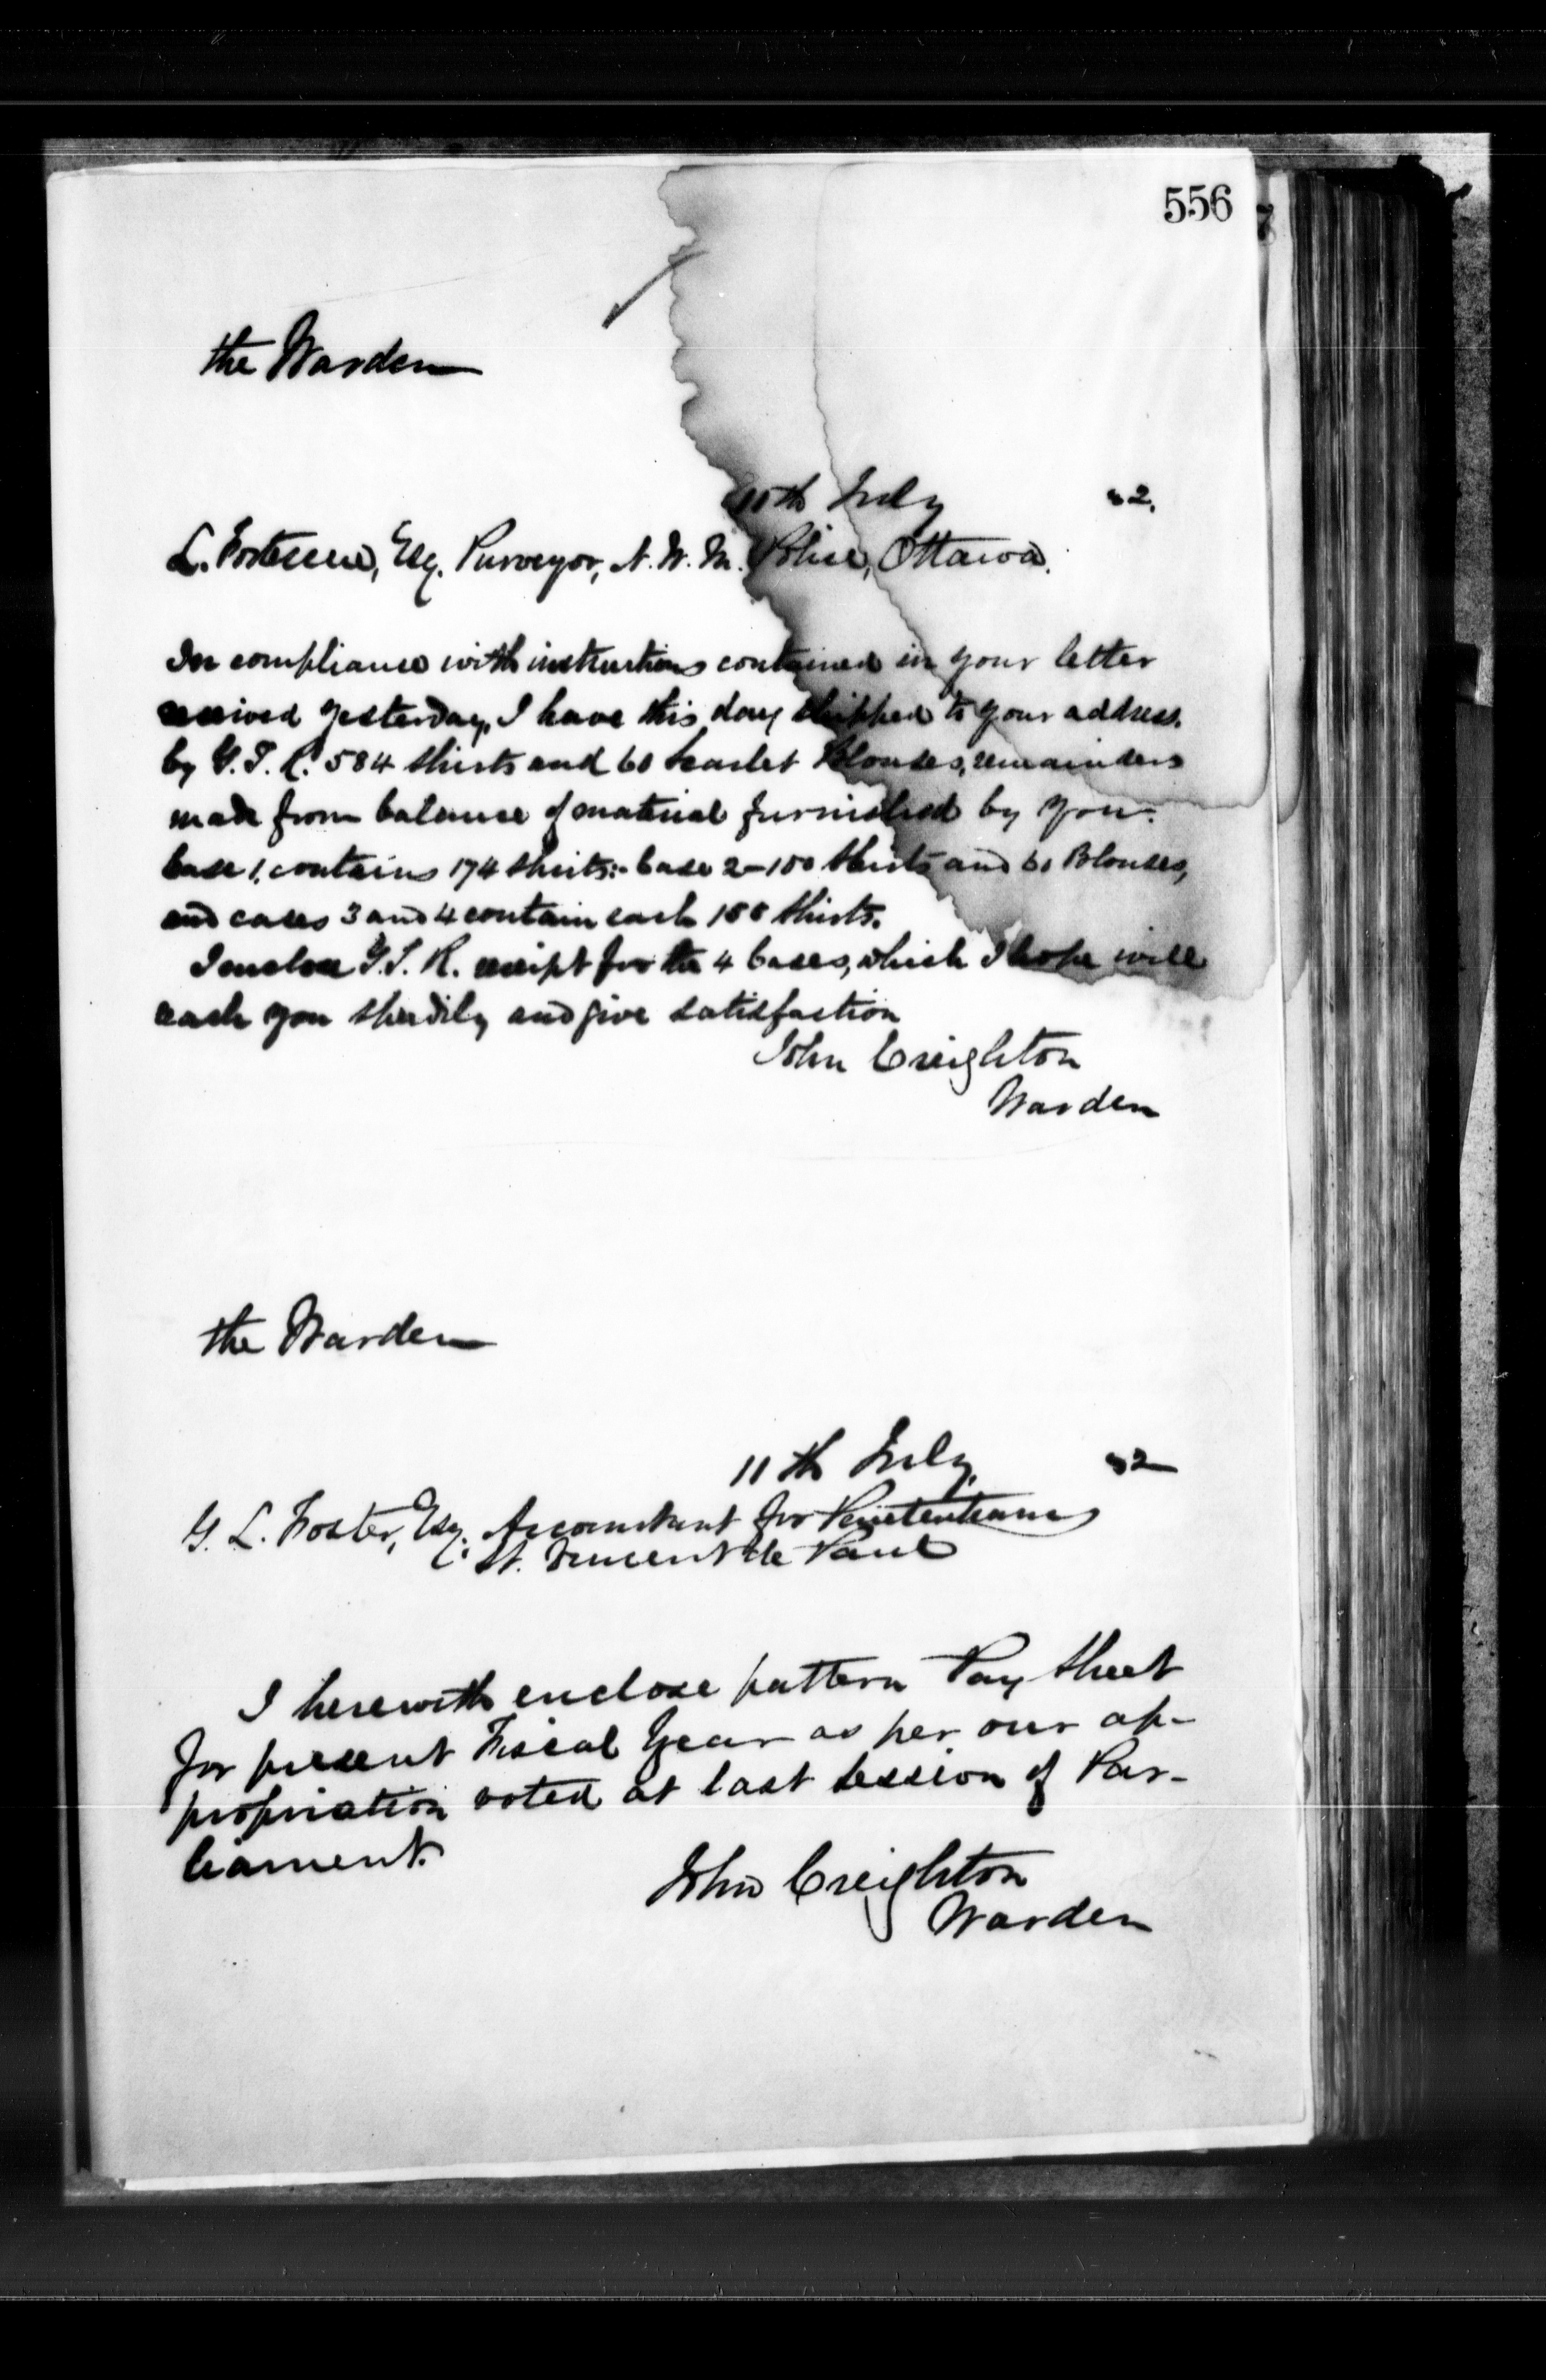 556
the Warden
10th July 82.
L. Fortescue, Esq. Purveyor, N. W. M. Police, Ottawa.
In compliance with instructions contained in your letter
received yesterday, I have this day shipped to your address,
by G. T. R. 584 Shirts and 60 Scarlet Blouses, remainders
made from balance of material furnished by you.
Case 1. contains 174 Shirts:- Case 2- Shirts and 60 Blouses,
and cases 3 and 4 contain each Shirts.
I enclose G. T. R. receipt for the 4 Cases, which I hope will
reach you speedily and give satisfaction
John Creighton
Warden
the Warden
11th July, 82
G. L. Foster, Esq. Accountant for Penitentiaries
St. Vincent de Paul
I herewith enclose pattern Pay Sheet
for present Fiscal Year as per our ap-
propriation voted at last Session of Par-
liament.
John Creighton
Warden